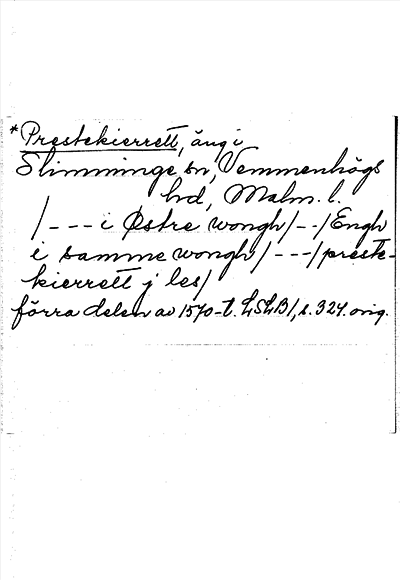 *Prestekierrett, äng i
Slimminge sn, Vemmenhögs
hd, Malm. l.
/--- i Østre wongh/--/Engh
i samme wongh/---/preste-
kierrett j les/
förra delen av 1570-t. LSLB1, s. 324. orig.